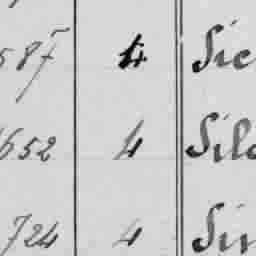 587 4 Sic
652 4 Silo
724 4 Sin